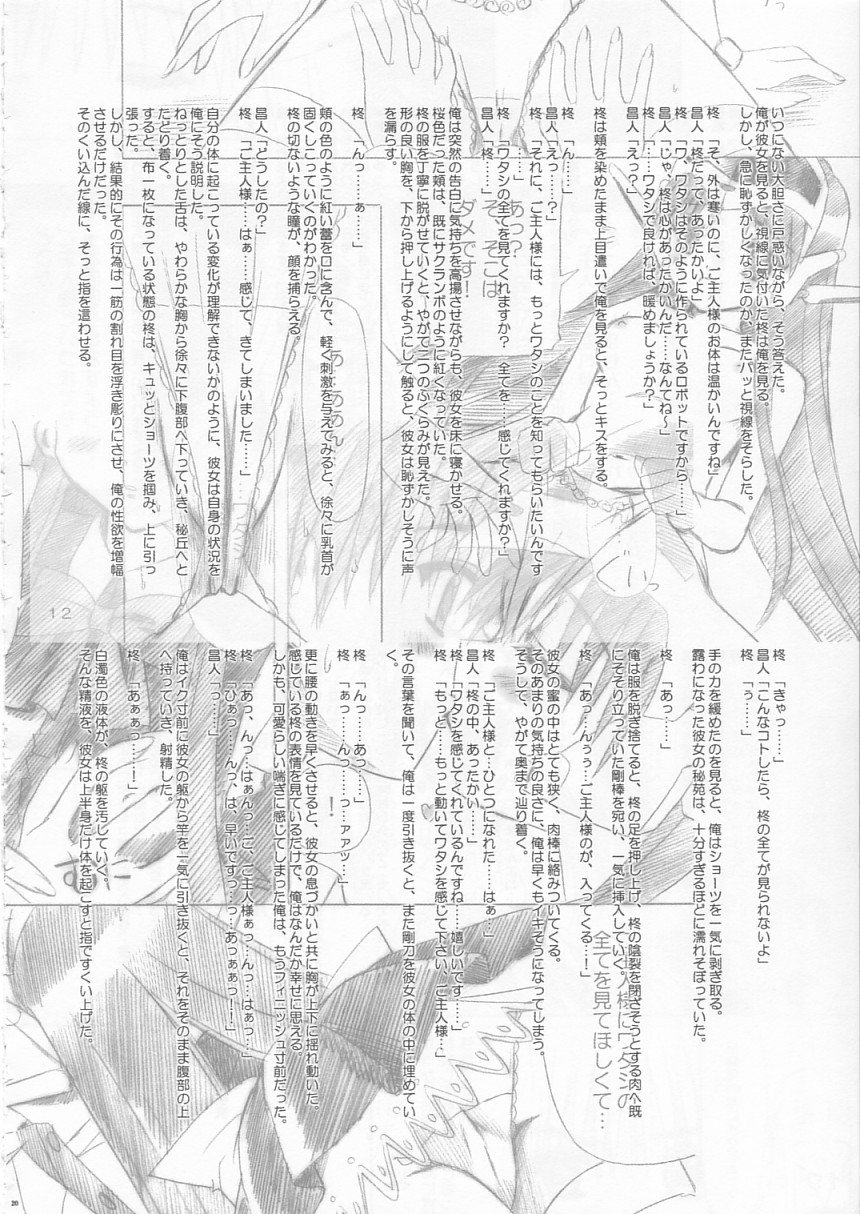 いつにない大胆さに戸惑いながら、そう答えた。
俺が彼女を見ると、視線に気付いた柊は俺を見る。
しかし、急に恥ずかしくなったのか、またパッと視線をそらした。
柊「そ、外は寒いのに、ご主人様のお体は温かいんですね」
昌人「柊だって、あったかいよ」
柊「ワ、ワタシはそのように作られているロボットですから……」
昌人「じゃ、柊は心があったかいんだ……なんてね〜」
柊「……ワタシで良ければ、暖めましょうか?」
昌人「えっ?」
柊は頬を染めたまま上目遣いで俺を見ると、そっとキスをする。
柊「ん……」
昌人「えっ……?」
柊「それに、ご主人様には、もっとワタシのことを知ってもらいたいんです……」
柊「ワタシの全てを見てくれますか? 全てを……感じてくれますか?」
昌人「柊……」
俺は突然の告白に気持ちを高揚させながらも、彼女を床に寝かせる。
桜色だった頬は、既にサクランボのように紅くなっていた。
柊の服を丁寧に脱がせていくと、やがて二つのふくらみが見えた。
形の良い胸を、下から押し上げるようにして触ると、彼女は恥ずかしそうに声
を漏らす。
柊「んっ……ぁ……」
頬の色のように紅い蕾を口に含んで、軽く刺激を与えてみると、徐々に乳首が
固くしこっていくのがわかった。
柊の切ないような瞳が、顔を捕らえる。
昌人「どうしたの?」
柊「ご主人様……はぁ……感じて、きてしまいました……」
自分の体に起こっている変化が理解できないかのように、彼女は自身の状況を
俺にそう説明した。
ねっとりとした舌は、やわらかな胸から徐々に下腹部へ下っていき、秘丘へと
たどり着く。
すると、布一枚になっている状態の柊は、キュッとショーツを掴み、上に引っ
張った。
しかし、結果的にその行為は一筋の割れ目を浮き彫りにさせ、俺の性欲を増幅
させるだけだった。
そのくい込んだ線に、そっと指を這わせる。
柊「きゃっ……」
昌人「こんなコトしたら、柊の全てが見られないよ」
柊「ぅ……」
手の力を緩めたのを見ると、俺はショーツを一気に剥ぎ取る。
露わになった彼女の秘苑は、十分すぎるほどに濡れそぼっていた。
柊「あっ……」
俺は服を脱ぎ捨てると、柊の足を押し上げ、柊の陰裂を閉ざそうとする肉へ既
にそそり立っていた剛棒を宛い、一気に挿入していく。
柊「あっ……んぅぅ……ご主人様のが、入ってくる…！」
彼女の蜜の中はとても狭く、肉棒に絡みついてくる。
そのあまりの気持ちの良さに、俺は早くもイキそうになってしまう。
そうして、やがて奥まで辿り着く。
柊「ご主人様と…ひとつになれた……はぁ…」
昌人「柊の中、あったかい……」
柊「ワタシを感じてくれているんですね……嬉しいです……」
柊「もっと……もっと動いてワタシを感じて下さい、ご主人様…」
その言葉を聞いて、俺は一度引き抜くと、また剛刀を彼女の体の中に埋めてい
く。
柊「んっ……あっ……」
柊「ぁっ……んっ……っ…ァアッ…」
更に腰の動きを早くさせると、彼女の息づかいと共に胸が上下に揺れ動いた。
感じている柊の表情を見ているだけで、俺はなんだか幸せに思える。
しかも、可愛らしい喘ぎに感じてしまった俺は、もうフィニッシュ寸前だった。
柊「あっ、んっ…はぁんっ…こ、ご主人様ぁっ…んっ…はぁっ…」
柊「ひぁっ……んっ、は、早いですっ…っ…あっぁぁっ！！」
昌人「っ……」
俺はイク寸前に彼女の躯から竿を一気に引き抜くと、それをそのまま腹部の上
へ持っていき、射精した。
柊「あぁぁっ……！」
白濁色の液体が、柊の躯を汚していく。
そんな精液を、彼女は上半身だけ体を起こすと指ですくい上げた。
あっ?
そ、そこは
ダメです!
あ…ああん
…ワタシ
ぐいっ
ご主人様にワタシの
全てを見てほしくて…
！
12
20